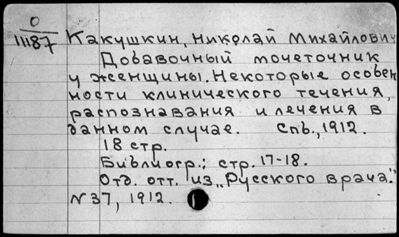 О
11187
Какушкин, Николай Михайлович
Добавочный мочеточник
у женщины. Некоторые особен
ности клинического течения,
распознавания и лечения в
данном случае. Спб., 1912.
18 стр.
Библиогр.: стр. 17-18.
Отд. отт. из „Русского врача."
N 37, 1912.